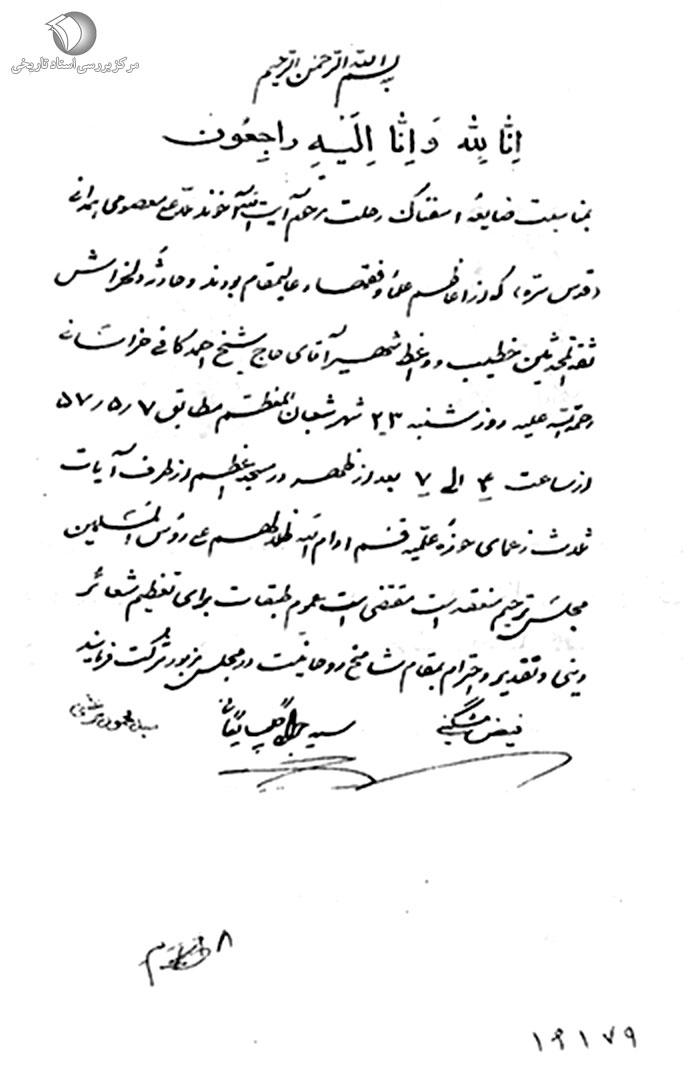 مرکز بررسی اسناد تاریخی
بسم الله الرحمن الرحیم
اِنّا لِلّٰه وَ اِنّا اِلَیْهِ راجِعُون
بمناسبت ضایعهٔ اسفناک رحلت مرحوم آیت الله آخوند ملا علی معصومی همدانی
(قدس سره) که از اعاظم علماء و فقهاء عالیمقام بودند و حادثه دلخراش
ثقة المحدثین خطیب و واعظ شهیر آقای حاج شیخ احمد کافی خراسانی
رحمة الله علیه روز شنبه ۲۳ شهر شعبان المعظم مطابق ۵۷٫۵٫۷
از ساعت ۴ الی ۷ بعد از ظهر در مسجد اعظم از طرف آیات
ثلاث زعمای حوزه علمیه قم ادام الله ظلالهم علی رؤس المسلمین
مجلس ترحیم منعقد است مقتضی است عموم طبقات برای تعظیم شعائر
دینی و تقدیر و احترام بمقام شامخ روحانیت در مجلس مزبور شرکت فرمایند
فیض مشکینی سید جواد گلپایگانی
۱۹۱۷۹